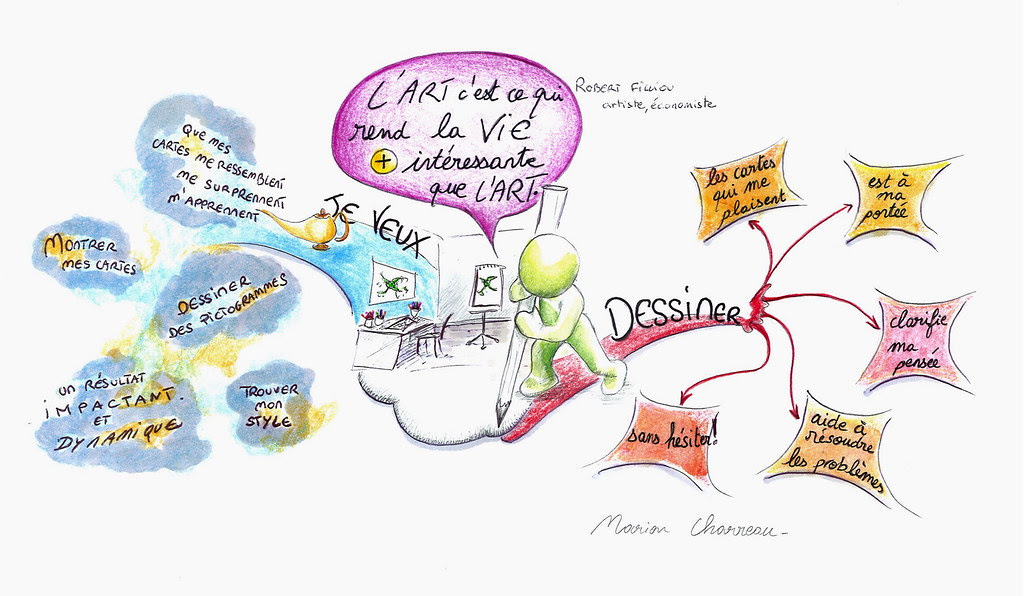 L'ART c'est ce qui
rend la VIE
+ intéressante
que L'ART.
ROBERT Filliou
artiste, économiste
JE VEUX
QUE MES
CARTES ME RESSEMBLENT
ME SURPRENNENT
M'APPRENNENT
MONTRER
MES CARTES
DESSINER
DES PICTOGRAMMES
UN RÉSULTAT
IMPACTANT.
ET
DYNAMIQUE
TROUVER
MON
STYLE
DESSINER
les cartes
qui me
plaisent
est à
ma
portée
clarifie
ma
pensée
aide à
résoudre
les problèmes
sans hésiter!
Marion Charreau